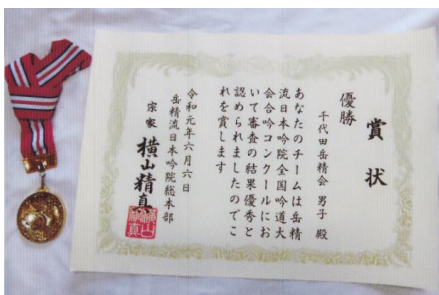 賞状
優勝
千代田岳精会 男子 殿
あなたのチームは岳精
流日本吟院全国吟道大
会合吟コンクールにお
いて審査の結果優秀と
認められましたのでこ
れを賞します
令和元年六月六日
岳精流日本吟院総本部
宗家 横山精真